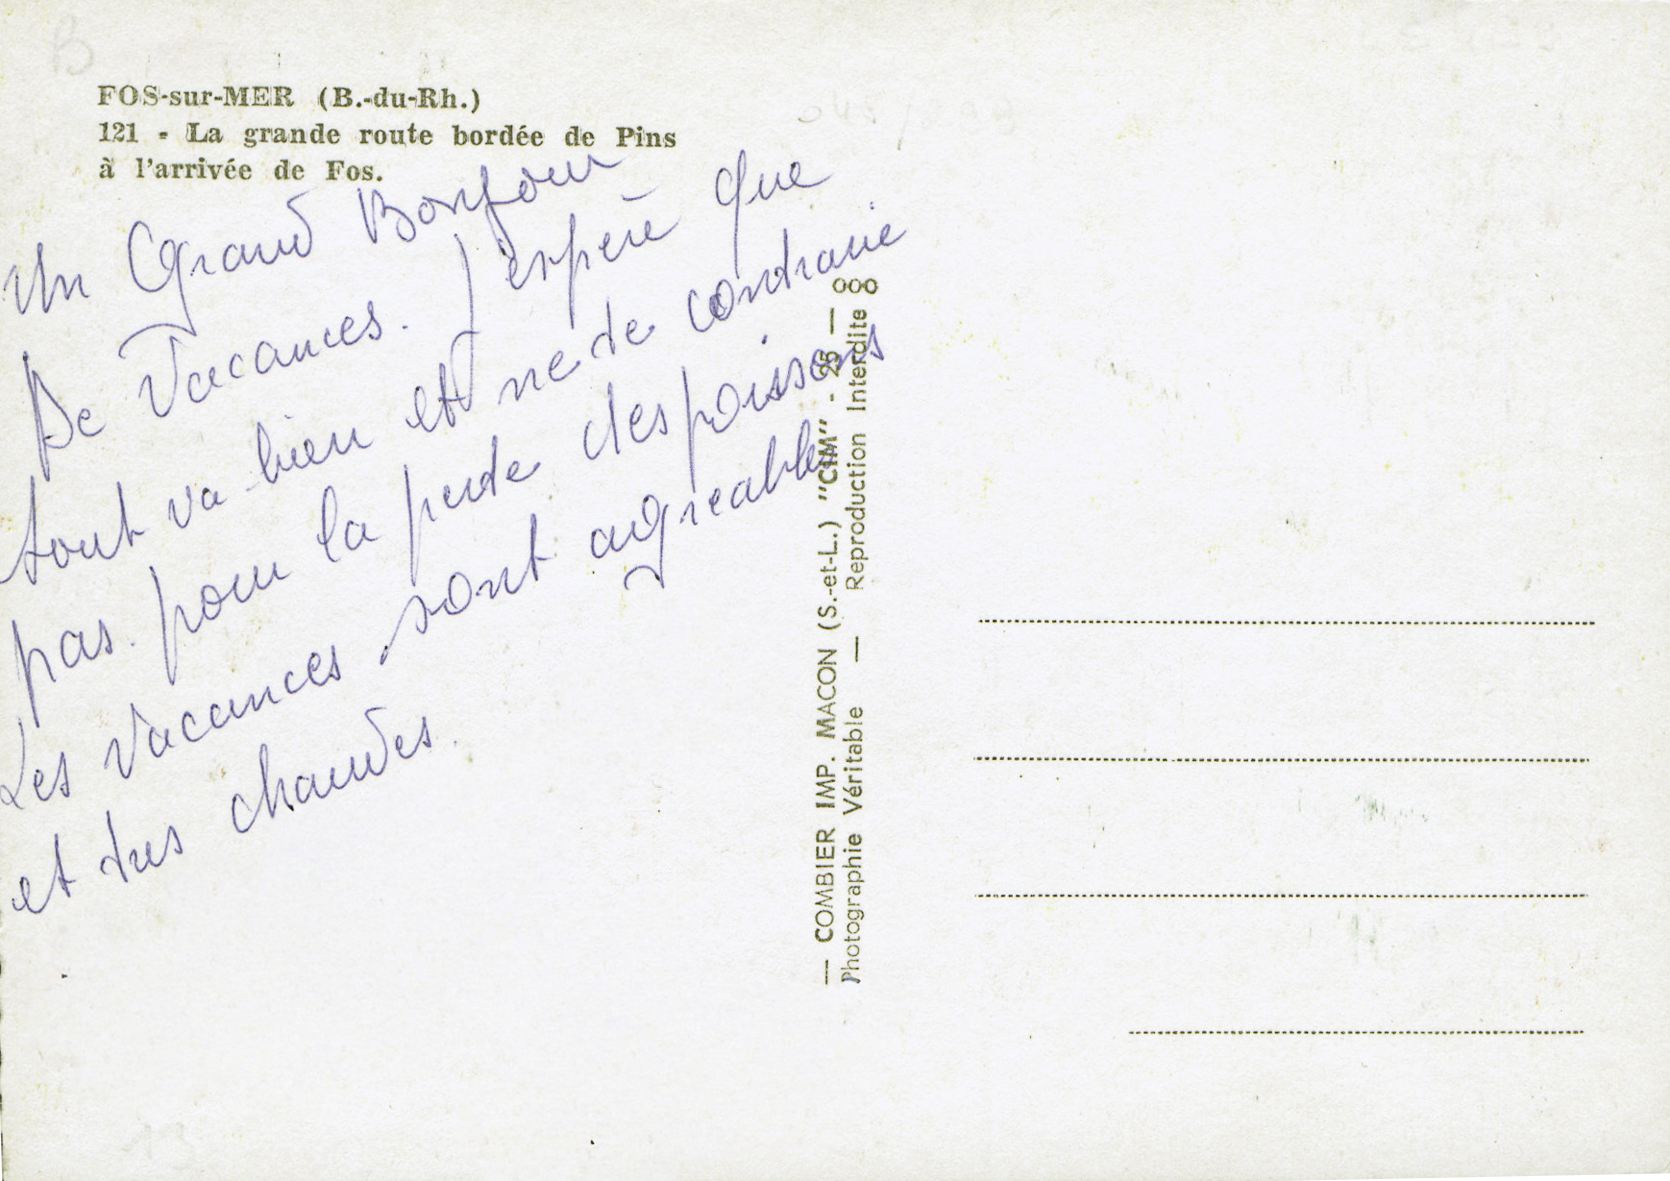 FOS-sur-MER (B.-du-Rh.)
121 - La grande route bordée de Pins
à l'arrivée de Fos.
Un Grand Bonjour
De Vacances. J'espère que
tout va bien et ne te contrarie
pas. pour la perte des poissons
Les vacances sont agreables
et tres chaudes.
— COMBIER IMP. MACON (S.-et-L.) "CIM" - 25 —
Photographie Véritable — Reproduction Interdite
13